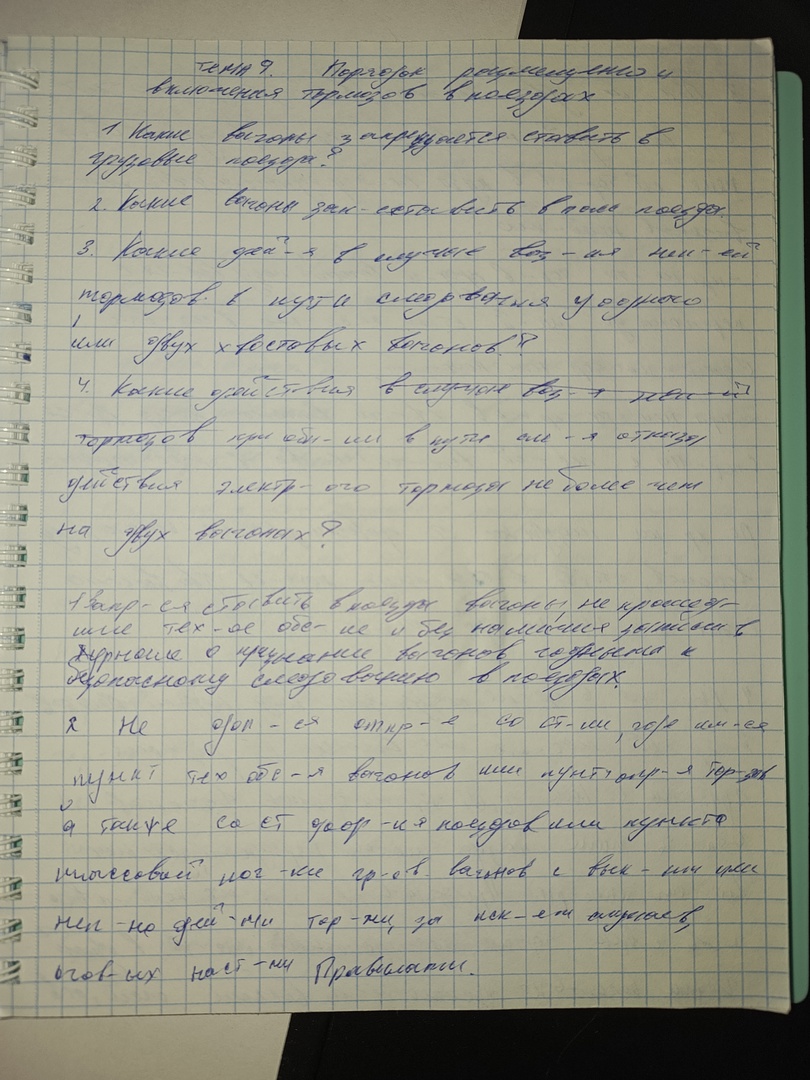 Тема 9. Порядок размещения и
включения тормозов в поездах
1 Какие вагоны запрещается ставить в
грузовые поезда?
2. Какие вагоны зап-ся ставить в поезда
3. Какие дей-я в случае воз-ия неи-ей
тормозов в пути следования у одного
или двух хвостовых вагонов?
4. Какие действия в случае воз-я неи-й
тормозов при обн-ии в пути сле-я отказа
действия электр-ого тормоза не более чем
на двух вагонах?
1 Запр-ся ставить в поезда вагоны, не прошед-
шие тех-ое обс-ие и без наличия записи в
журнале о признании вагонов годными к
безопасному следованию в поездах.
2 Не доп-ся отпр-е со ст-ии, где им-ся
пункт тех обс-я вагонов или пункт опр-я тор-зов
а также со ст фор-ия поездов или пункта
массовой пог-ки гр-ов вагонов с вык-ми или
неи-но дей-ми тор-ми, за иск-ем случаев,
огов-ых наст-ми Правилами.